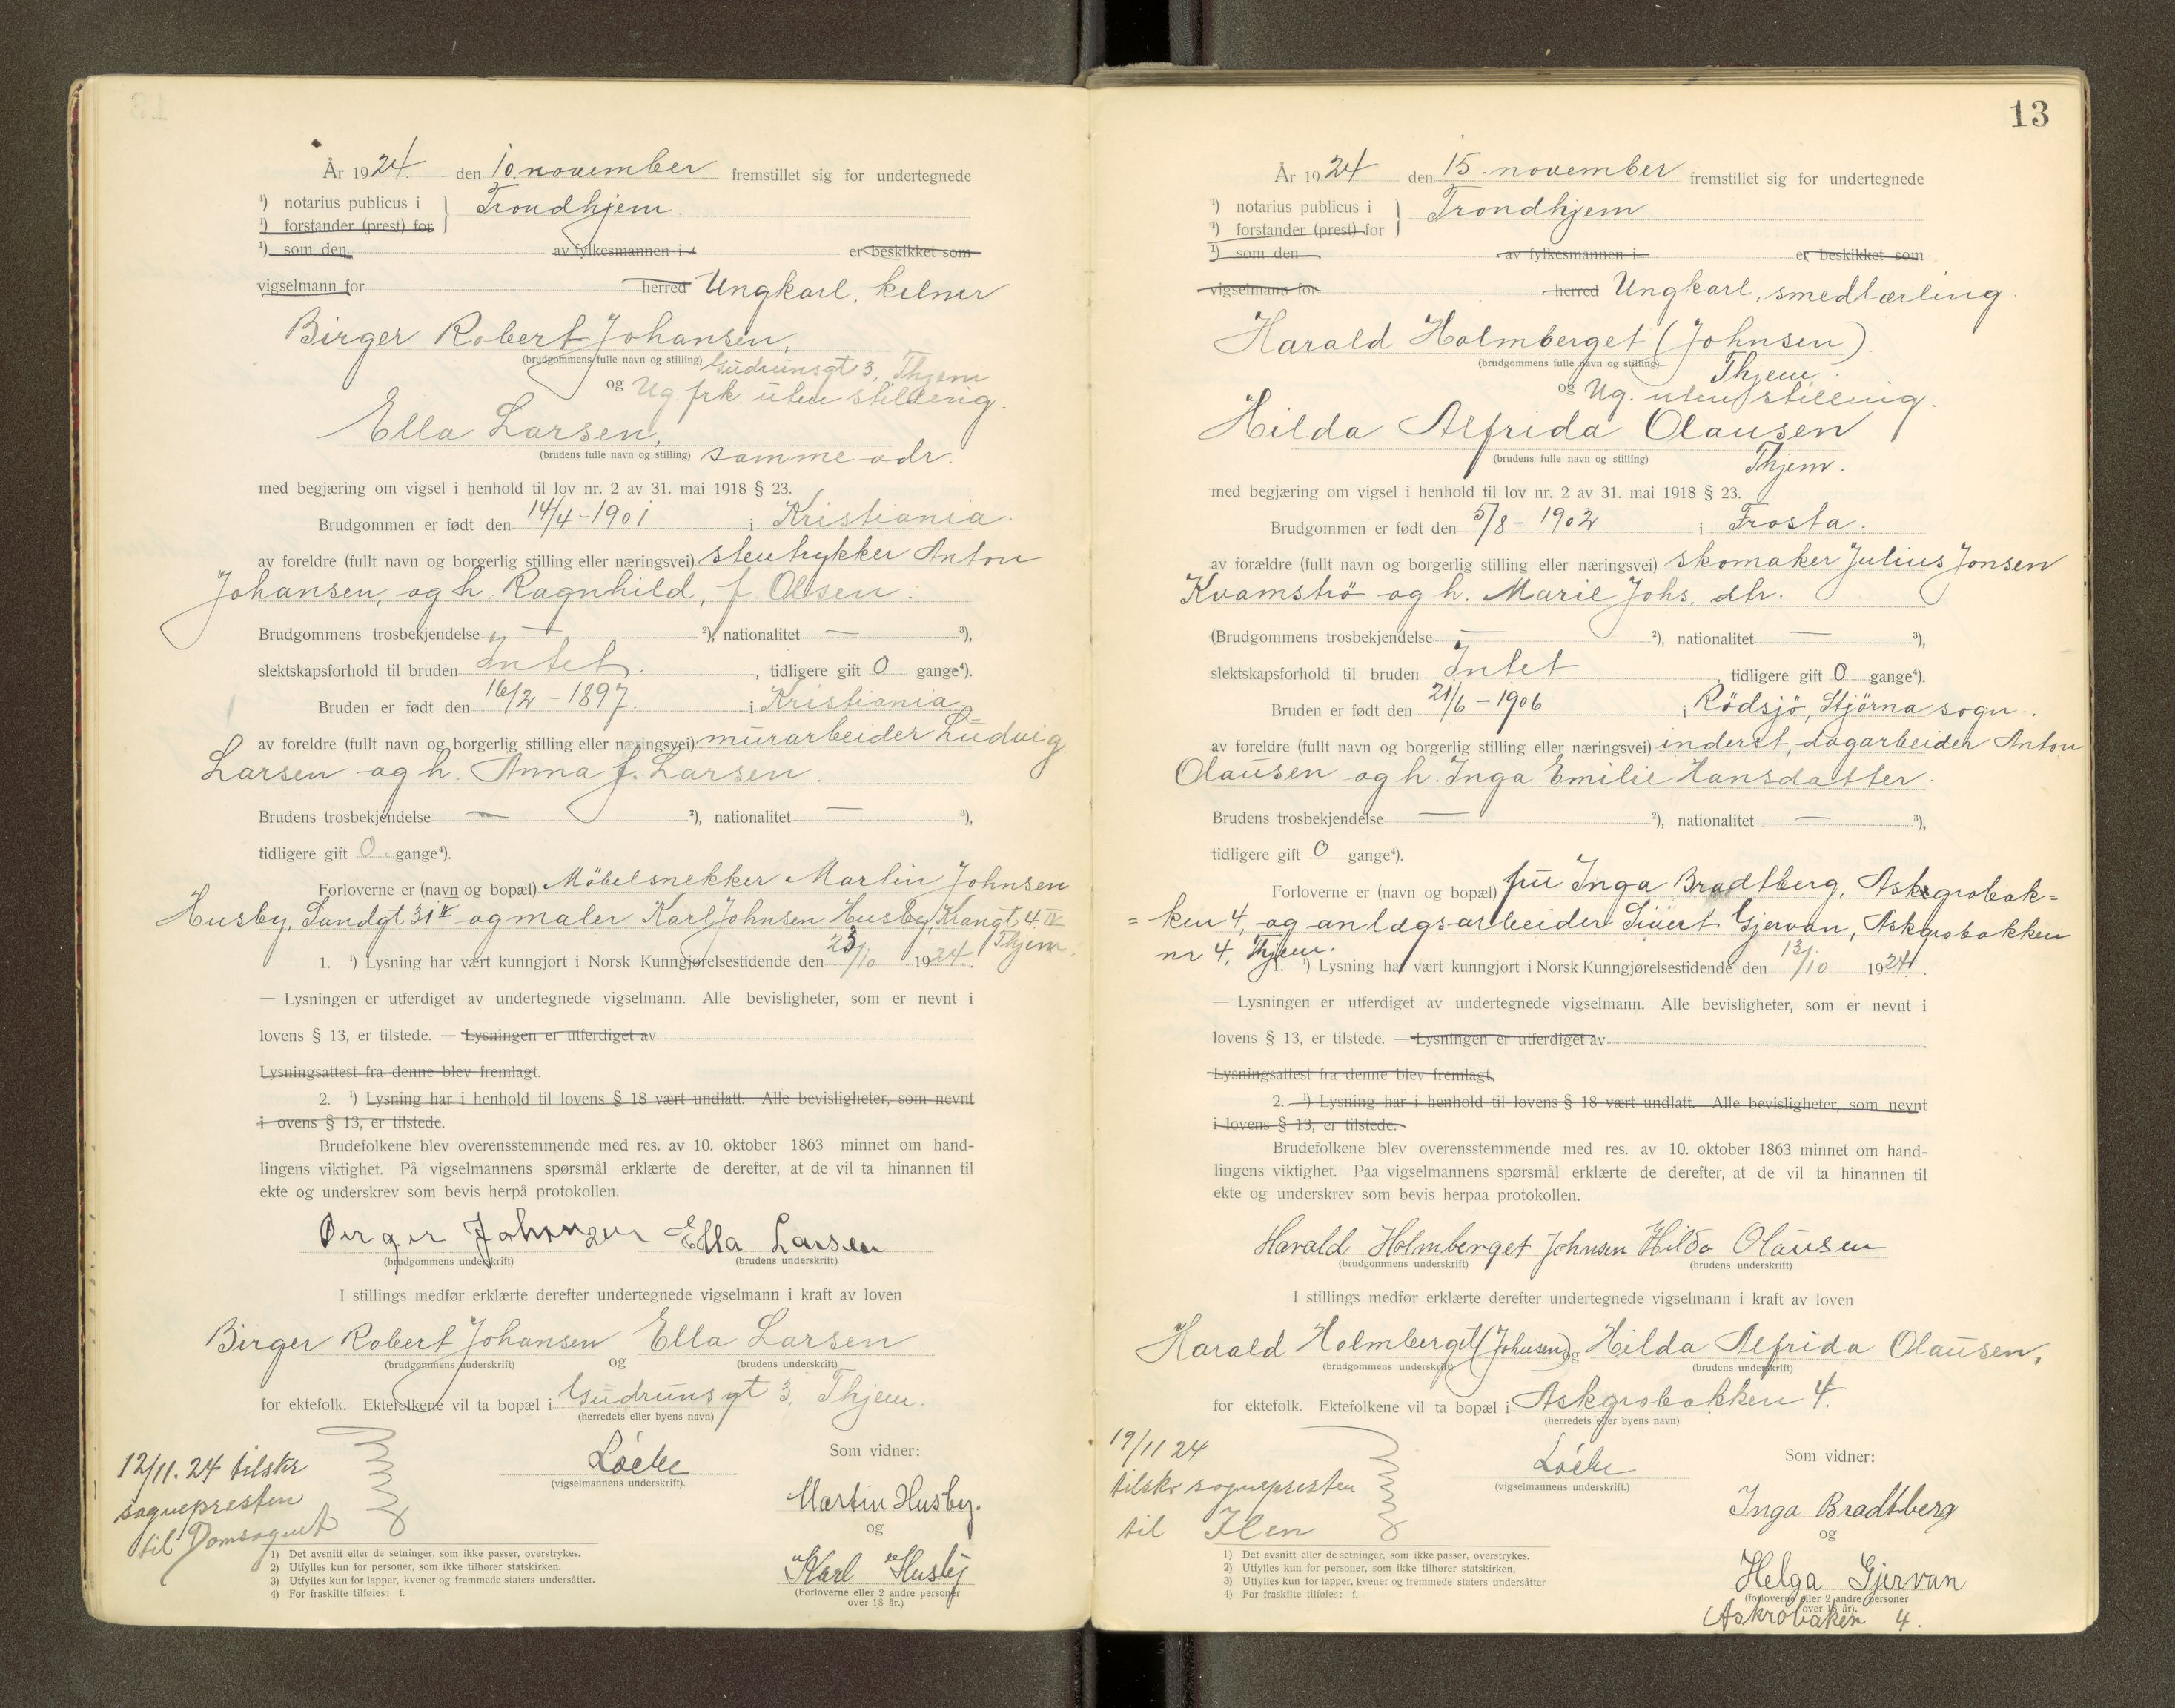 År 1924. den 10. november fremstillet sig for undertegnede
¹) notarius publicus i } Trondhjem.
¹) forstander (prest) for
¹) som den av fylkesmannen i er beskikket som
vigselmann for herred Ungkarl, kelner
Birger Robert Johansen,
(brudgommens fulle navn og stilling) Gudrunsgt 3, Thjem
og Ug. frk. uten stilling.
Ella Larsen,
(brudens fulle navn og stilling) samme adr.
med begjæring om vigsel i henhold til lov nr. 2 av 31. mai 1918 § 23.
Brudgommen er født den 14/4-1901 i Kristiania.
av foreldre (fullt navn og borgerlig stilling eller næringsvei) stentrykker Anton
Johansen, og h. Ragnhild, f. Olsen.
Brudgommens trosbekjendelse — ²), nationalitet — ³),
slektskapsforhold til bruden Intet. , tidligere gift 0 gange⁴).
Bruden er født den 16/2-1897. i Kristiania.
av foreldre (fullt navn og borgerlig stilling eller næringsvei) murarbeider Ludvig
Larsen og h. Anna f. Larsen.
Brudens trosbekjendelse — ²), nationalitet — ³),
tidligere gift 0 gange⁴).
Forloverne er (navn og bopæl) Møbelsnekker Martin Johnsen
Husby, Sandgt 31 II og maler Karl Johnsen Husby, Krangt 4 IV
Thjem.
1. ¹) Lysning har vært kunngjort i Norsk Kunngjørelsestidende den 23/10 1924.
— Lysningen er utferdiget av undertegnede vigselmann. Alle bevisligheter, som er nevnt i
lovens § 13, er tilstede. — Lysningen er utferdiget av
Lysningsattest fra denne blev fremlagt.
2. ¹) Lysning har i henhold til lovens § 18 vært undlatt. Alle bevisligheter, som nevnt
i ovens § 13, er tilstede.
Brudefolkene blev overensstemmende med res. av 10. oktober 1863 minnet om hand-
lingens viktighet. På vigselmannens spørsmål erklærte de derefter, at de vil ta hinannen til
ekte og underskrev som bevis herpå protokollen.
Birger Johansen Ella Larsen
(brudgommens underskrift) (brudens underskrift)
I stillings medfør erklærte derefter undertegnede vigselmann i kraft av loven
Birger Robert Johansen Ella Larsen
(brudgommens underskrift) og (brudens underskrift)
for ektefolk. Ektefolkene vil ta bopæl i Gudrunsgt 3, Thjem.
(herredets eller byens navn)
12/11.24 tilskr
sognepresten
til Domsognet
Løcke
(vigselmannens underskrift).
Som vidner:
Martin Husby.
og
Karl Husby
(Forloverne eller 2 andre personer
over 18 år.)
1) Det avsnitt eller de setninger, som ikke passer, overstrykes.
2) Utfylles kun for personer, som ikke tilhører statskirken.
3) Utfylles kun for lapper, kvener og fremmede staters undersåtter.
4) For fraskilte tilføies: f.
13
År 1924 den 15. november fremstillet sig for undertegnede
¹) notarius publicus i } Trondhjem
¹) forstander (prest) for
¹) som den av fylkesmannen i er beskikket som
vigselmann for herred Ungkarl, smedlærling.
Harald Holmberget (Johnsen).
(brudgommens fulle navn og stilling) Thjem.
og Ug. uten stilling.
Hilda Alfrida Olausen
(brudens fulle navn og stilling) Thjem.
med begjæring om vigsel i henhold til lov nr. 2 av 31. mai 1918 § 23.
Brudgommen er født den 5/8-1902 i Frosta.
av forældre (fullt navn og borgerlig stilling eller næringsvei) skomaker Julius Jonsen
Kvamstrø og h. Marie Johs. dtr.
(Brudgommens trosbekjendelse — ²), nationalitet — ³),
slektskapsforhold til bruden Intet , tidligere gift 0 gange⁴).
Bruden er født den 21/6-1906 i Rödsjö, Stjörna sogn.
av foreldre (fullt navn og borgerlig stilling eller næringsvei) inderst, dagarbeider Anton
Olausen og h. Inga Emilie Hansdatter.
Brudens trosbekjendelse — ²), nationalitet — ³),
tidligere gift 0 gange⁴).
Forloverne er (navn og bopæl) fru Inga Bradtberg, Askgrobak=
=ken 4, og anlægsarbeider Sivert Gjervan, Askgrobakken
nr 4, Thjem.
1. ¹) Lysning har vært kunngjort i Norsk Kunngjørelsestidende den 13/10 1924.
— Lysningen er utferdiget av undertegnede vigselmann. Alle bevisligheter, som er nevnt i
lovens § 13, er tilstede. — Lysningen er utferdiget av
Lysningsattest fra denne blev fremlagt.
2. ¹) Lysning har i henhold til lovens § 18 vært undlatt. Alle bevisligheter, som nevnt
i lovens § 13, er tilstede.
Brudefolkene blev overensstemmende med res. av 10. oktober 1863 minnet om hand-
lingens viktighet. Paa vigselmannens spørsmål erklærte de derefter, at de vil ta hinannen til
ekte og underskrev som bevis herpaa protokollen.
Harald Holmberget Johnsen Hilda Olausen
(brudgommens underskrift) (brudens underskrift)
I stillings medfør erklærte derefter undertegnede vigselmann i kraft av loven
Harald Holmberget (Johnsen) og Hilda Alfrida Olausen,
(brudgommens underskrift) (brudens underskrift)
for ektefolk. Ektefolkene vil ta bopæl i Askgrobakken 4.
(herredets eller byens navn)
19/11 24
tilskr sognepresten
til Ilen
Løcke
(vigselmannens underskrift.)
Som vidner:
Inga Bradtberg
og
Helga Gjervan
(forloverne eller 2 andre personer
over 18 år).
Askrobaken 4.
1) Det avsnitt eller de setninger, som ikke passer, overstrykes.
2) Utfylles kun for personer, som ikke tilhører statskirken.
3) Utfylles kun for lapper, kvener og fremmede staters undersåtter
4) For fraskilte tilføies: f.